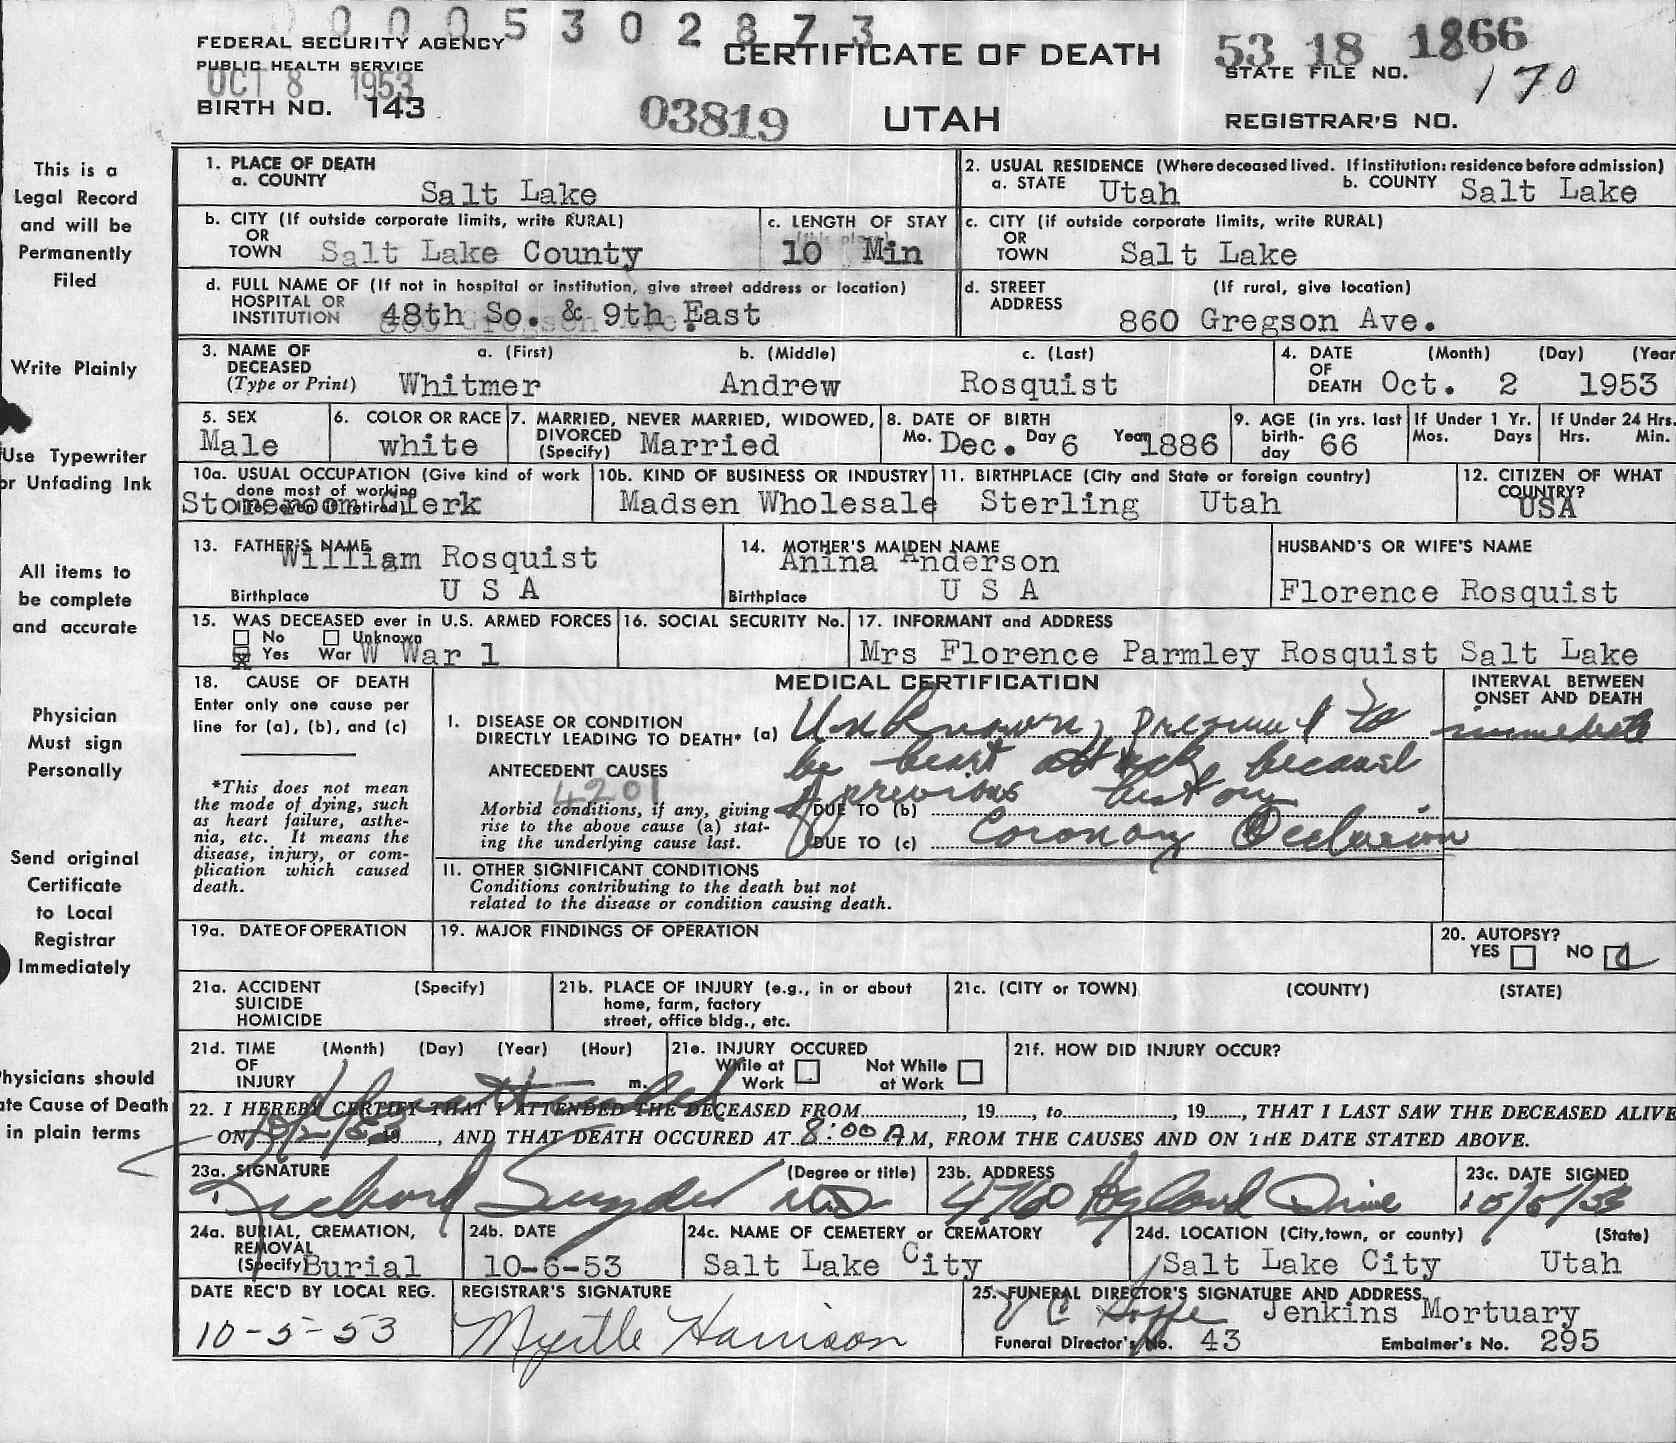 0005302873
FEDERAL SECURITY AGENCY
PUBLIC HEALTH SERVICE
OCT 8 1953
BIRTH NO. 143
CERTIFICATE OF DEATH
03819 UTAH
53 18 1866
STATE FILE NO.
170
REGISTRAR'S NO.
This is a
Legal Record
and will be
Permanently
Filed
Write Plainly
Use Typewriter
or Unfading Ink
All items to
be complete
and accurate
Physician
Must sign
Personally
Send original
Certificate
to Local
Registrar
Immediately
Physicians should
ate Cause of Death
in plain terms
1. PLACE OF DEATH
a. COUNTY Salt Lake
2. USUAL RESIDENCE (Where deceased lived. If institution: residence before admission)
a. STATE Utah b. COUNTY Salt Lake
b. CITY (If outside corporate limits, write RURAL)
OR
TOWN Salt Lake County
c. LENGTH OF STAY
(this place)
10 Min
c. CITY (if outside corporate limits, write RURAL)
OR
TOWN Salt Lake
d. FULL NAME OF (If not in hospital or institution, give street address or location)
HOSPITAL OR
INSTITUTION 48th So. & 9th East
d. STREET (If rural, give location)
ADDRESS
860 Gregson Ave.
3. NAME OF a. (First) b. (Middle) c. (Last)
DECEASED
(Type or Print) Whitmer Andrew Rosquist
4. DATE (Month) (Day) (Year
OF
DEATH Oct. 2 1953
5. SEX
Male
6. COLOR OR RACE
white
7. MARRIED, NEVER MARRIED, WIDOWED,
DIVORCED
(Specify) Married
8. DATE OF BIRTH
Mo. Dec. Day 6 Year 1886
9. AGE (in yrs. last
birth-
day 66
If Under 1 Yr.
Mos. Days
If Under 24 Hrs.
Hrs. Min.
10a. USUAL OCCUPATION (Give kind of work
done most of working
life, even if retired)
Storeroom Clerk
10b. KIND OF BUSINESS OR INDUSTRY
Madsen Wholesale
11. BIRTHPLACE (City and State or foreign country)
Sterling Utah
12. CITIZEN OF WHAT
COUNTRY?
USA
13. FATHER'S NAME
William Rosquist
Birthplace U S A
14. MOTHER'S MAIDEN NAME
Anina Anderson
Birthplace U S A
HUSBAND'S OR WIFE'S NAME
Florence Rosquist
15. WAS DECEASED ever in U.S. ARMED FORCES
No Unknown
Yes War W War 1
16. SOCIAL SECURITY No.
17. INFORMANT and ADDRESS
Mrs Florence Parmley Rosquist Salt Lake
18. CAUSE OF DEATH
Enter only one cause per
line for (a), (b), and (c)
*This does not mean
the mode of dying, such
as heart failure, asthe-
nia, etc. It means the
disease, injury, or com-
plication which caused
death.
MEDICAL CERTIFICATION
INTERVAL BETWEEN
ONSET AND DEATH
I. DISEASE OR CONDITION
DIRECTLY LEADING TO DEATH* (a) Unknown, presumed to immediate
be heart attack because
ANTECEDENT CAUSES
4201
of previous history
Morbid conditions, if any, giving
rise to the above cause (a) stat-
ing the underlying cause last.
DUE TO (b)
DUE TO (c) Coronary Occlusion
II. OTHER SIGNIFICANT CONDITIONS
Conditions contributing to the death but not
related to the disease or condition causing death.
19a. DATE OF OPERATION
19. MAJOR FINDINGS OF OPERATION
20. AUTOPSY?
YES NO
21a. ACCIDENT (Specify)
SUICIDE
HOMICIDE
21b. PLACE OF INJURY (e.g., in or about
home, farm, factory
street, office bldg., etc.
21c. (CITY or TOWN) (COUNTY) (STATE)
21d. TIME (Month) (Day) (Year) (Hour)
OF
INJURY m.
21e. INJURY OCCURED
While at Not While
Work at Work
21f. HOW DID INJURY OCCUR?
22. I HEREBY CERTIFY THAT I ATTENDED THE DECEASED FROM, 19, to, 19, THAT I LAST SAW THE DECEASED ALIVE
ON 10/2/53 19, AND THAT DEATH OCCURED AT 8:00 A M, FROM THE CAUSES AND ON THE DATE STATED ABOVE.
23a. SIGNATURE (Degree or title)
Richard Snyder MD
23b. ADDRESS
4760 Highland Drive
23c. DATE SIGNED
10/5/53
24a. BURIAL, CREMATION,
REMOVAL
(Specify) Burial
24b. DATE
10-6-53
24c. NAME OF CEMETERY or CREMATORY
Salt Lake City
24d. LOCATION (City, town, or county) (State)
Salt Lake City Utah
DATE REC'D BY LOCAL REG.
10-5-53
REGISTRAR'S SIGNATURE
Myrtle Harrison
25. FUNERAL DIRECTOR'S SIGNATURE AND ADDRESS
Jenkins Mortuary
Funeral Director's No. 43 Embalmer's No. 295